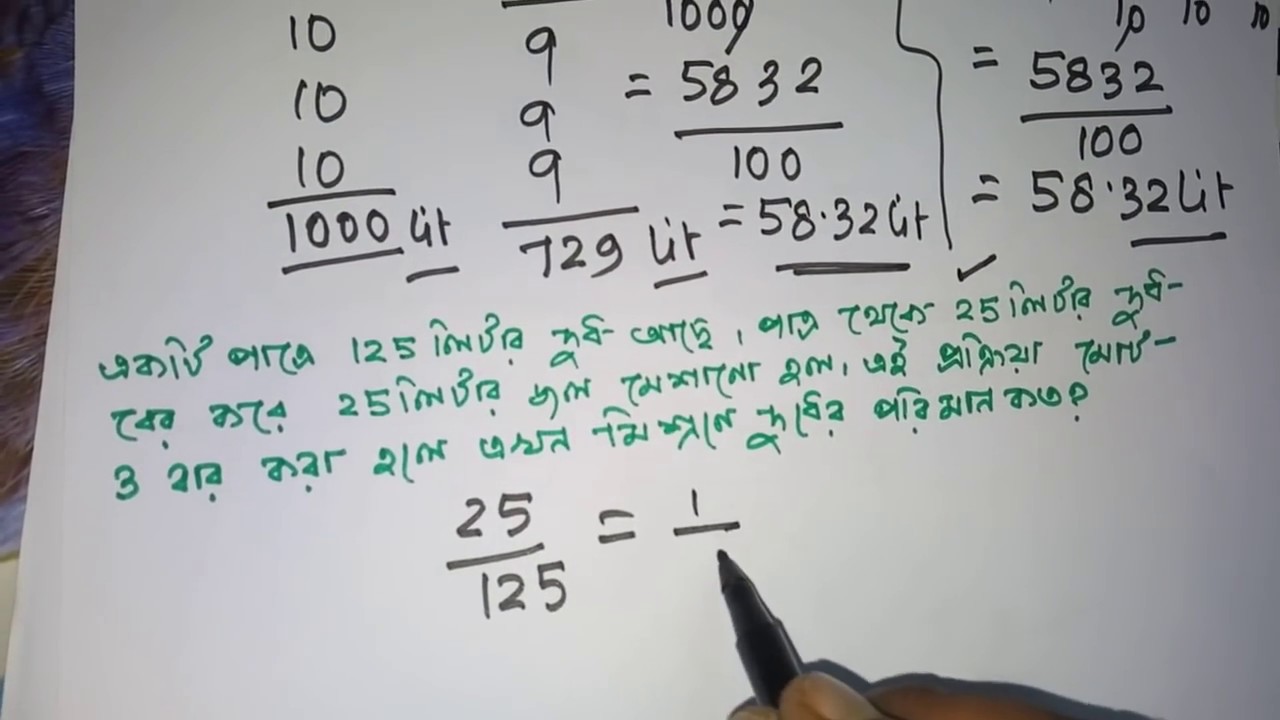 10 9 1000 10 10 10
10 9 = 5832 = 5832
10 9 100 100
1000 Lit 729 Lit = 58.32 Lit = 58.32 Lit
একটি পাত্রে 125 লিটার দুধ আছে, পাত্র থেকে 25 লিটার দুধ-
বের করে 25 লিটার জল মেশানো হল, এই প্রক্রিয়া মোট-
3 বার করা হলে এখন মিশ্রনে দুধের পরিমান কত?
25 = 1
125